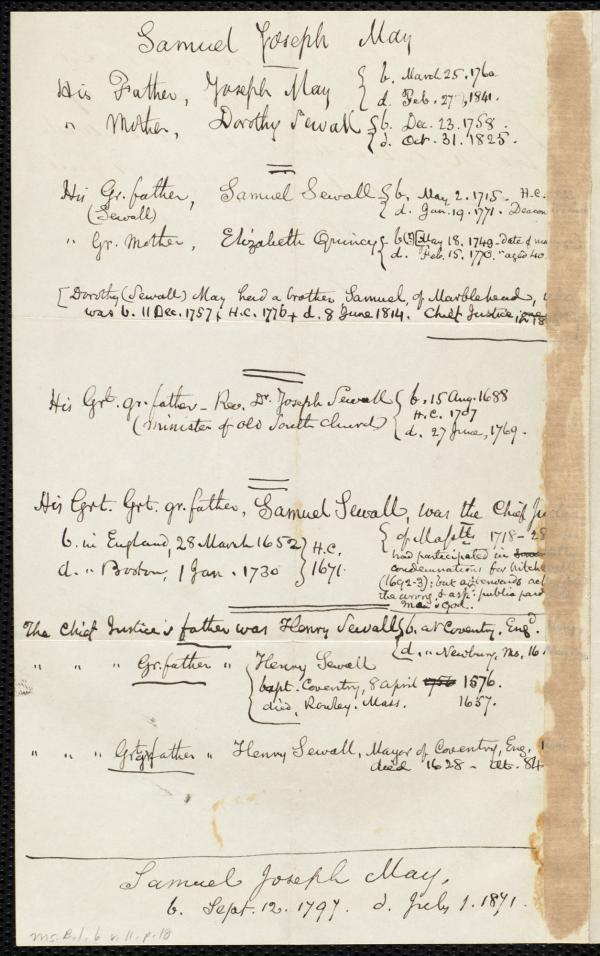 Samuel Joseph May
His Father, Joseph May { b. March 25. 1760
d. Feb. 27, 1841.
" Mother, Dorothy Sewall { b. Dec. 23. 1758.
d. Oct. 31. 1825.
His Gr. father, Samuel Sewall { b. May 2. 1715. H.C.
(Sewall) d. Jan. 19. 1771. Deacon
" Gr. Mother, Elizabeth Quincy { b. [?] May 18. 1749 - date of
d. Feb. 15. 1770. "aged 40
[Dorothy (Sewall) May had a brother Samuel, of Marblehead,
was b. 11 Dec. 1757; H.C. 1776; d. 8 June 1814. Chief Justice in 18
His Grt. gr. father - Rev. Dr. Joseph Sewall { b. 15 Aug. 1688
(Minister of Old South Church) H.C. 1707
d. 27 June, 1769.
His Grt. Grt. gr. father, Samuel Sewall, was the Chief
b. in England, 28 March 1652 } H.C. { of Masstts. 1718-28
d. " Boston, 1 Jan. 1730 } 1671. had participated in
condemnations for
(1692-3); but afterwards
the wrong, & ask. public
man & God.
The Chief Justice's father was Henry Sewall { b. at Coventry, Engd.
d. " Newbury, Ms. 16
" " " Gr. father " { Henry Sewall
bapt. Coventry, 8 April 1576.
died, Rowley. Mass. 1657.
" " " Grt. gr. father " Henry Sewall, Mayor of Coventry, Eng.,
died 1628 - aet. 84
Samuel Joseph May.
b. Sept. 12. 1797. d. July 1. 1871.
Ms. B. 1. 6 v. 11. p. 18